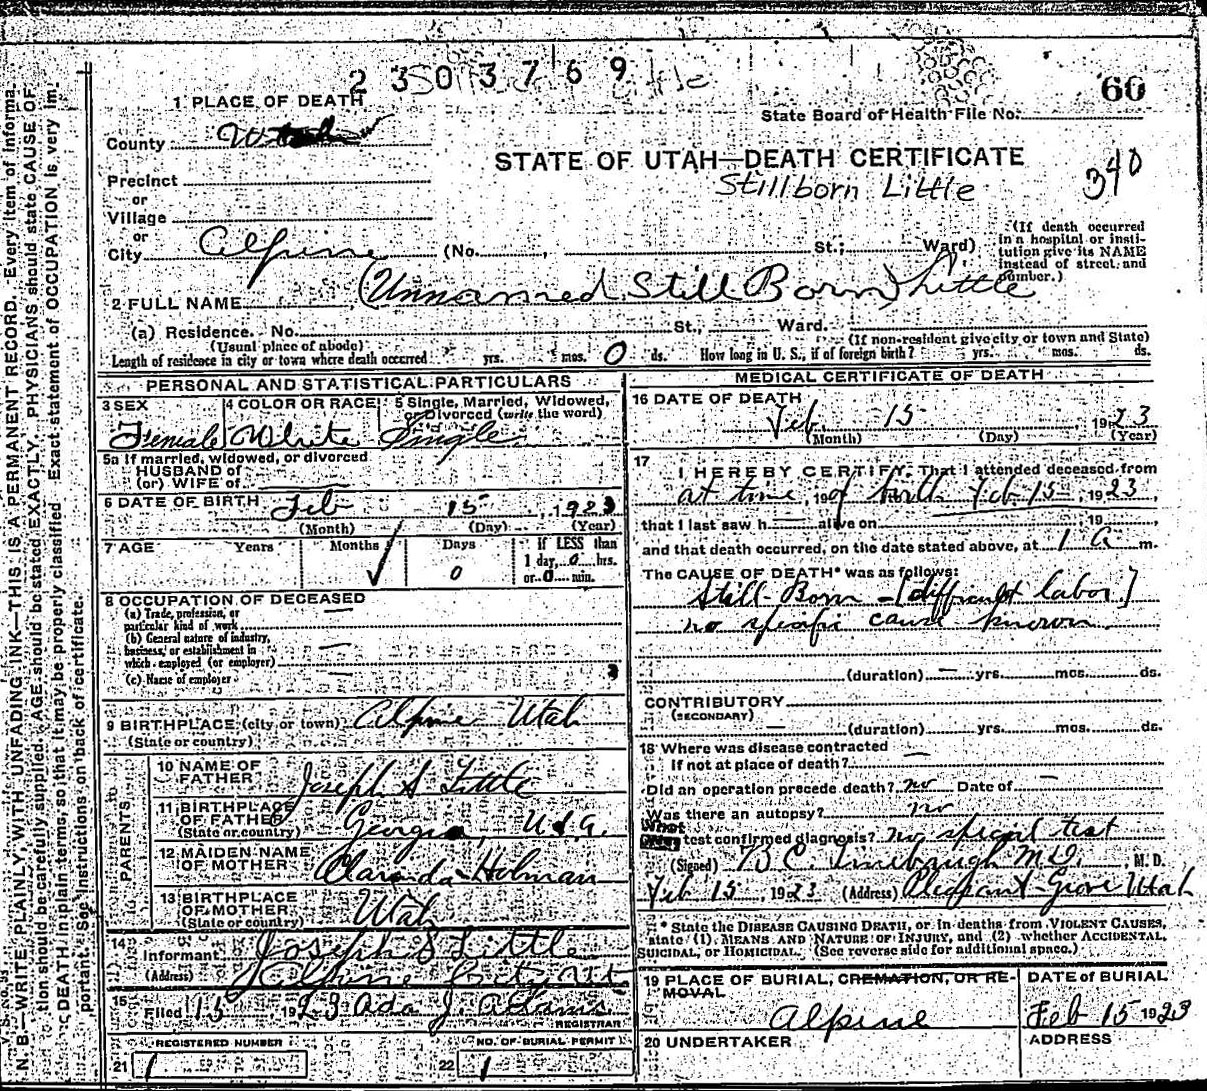 2303769
60
1 PLACE OF DEATH
State Board of Health File No.
County
STATE OF UTAH—DEATH CERTIFICATE
Stillborn Little
340
Precinct
or
Village
or
City Alpine (No. , St.; Ward)
(If death occurred in a hospital or institution give its NAME instead of street and number.)
2 FULL NAME (Unnamed Still Born) Little
(a) Residence. No. St., Ward.
(Usual place of abode) (If non-resident give city or town and State)
Length of residence in city or town where death occurred yrs. mos. 0 ds. How long in U. S., if of foreign birth? yrs. mos. ds.
PERSONAL AND STATISTICAL PARTICULARS
3 SEX 4 COLOR OR RACE 5 Single, Married, Widowed, or Divorced (write the word)
Female White Single
5a If married, widowed, or divorced
HUSBAND of
(or) WIFE of
6 DATE OF BIRTH Feb 15, 1923
(Month) (Day) (Year)
7 AGE Years Months Days If LESS than
0 1 day, 0 hrs.
or 0 min.
8 OCCUPATION OF DECEASED
(a) Trade, profession, or
particular kind of work
(b) General nature of industry,
business, or establishment in
which employed (or employer)
(c) Name of employer
9 BIRTHPLACE (city or town) Alpine Utah
(State or country)
PARENTS
10 NAME OF
FATHER Joseph S Little
11 BIRTHPLACE
OF FATHER
(State or country) Georgia, U.S.A.
12 MAIDEN NAME
OF MOTHER Claranda Holman
13 BIRTHPLACE
OF MOTHER
(State or country) Utah
14
Informant Joseph S Little
(Address) Alpine City Ut
15
Filed 15, 1923 Ada J. Adams
REGISTRAR
REGISTERED NUMBER NO. OF BURIAL PERMIT
21 1 22 1
MEDICAL CERTIFICATE OF DEATH
16 DATE OF DEATH
Feb 15, 1923
(Month) (Day) (Year)
17
I HEREBY CERTIFY, That I attended deceased from
at time, 19 of birth Feb 15, 1923,
that I last saw h alive on , 19 ,
and that death occurred, on the date stated above, at 1 a m.
The CAUSE OF DEATH* was as follows:
Still-Born - [difficult labor]
no specific cause known
(duration) yrs. mos. ds.
CONTRIBUTORY
(SECONDARY)
(duration) yrs. mos. ds.
18 Where was disease contracted
If not at place of death?
Did an operation precede death? no Date of
Was there an autopsy? no
What test confirmed diagnosis? no special test
(Signed) B.C. Linebaugh M.D., M. D.
Feb 15, 1923 (Address) Pleasant Grove Utah
* State the DISEASE CAUSING DEATH, or in deaths from VIOLENT CAUSES,
state (1) MEANS AND NATURE OF INJURY, and (2) whether ACCIDENTAL,
SUICIDAL, or HOMICIDAL. (See reverse side for additional space.)
19 PLACE OF BURIAL, CREMATION, OR REMOVAL DATE of BURIAL
Alpine Feb 15 1923
20 UNDERTAKER ADDRESS
N. B.—WRITE PLAINLY, WITH UNFADING INK—THIS IS A PERMANENT RECORD. Every item of informa-
tion should be carefully supplied. AGE should be stated EXACTLY. PHYSICIANS should state CAUSE OF
DEATH in plain terms, so that it may be properly classified. Exact statement of OCCUPATION is very im-
portant. See instructions on back of certificate.